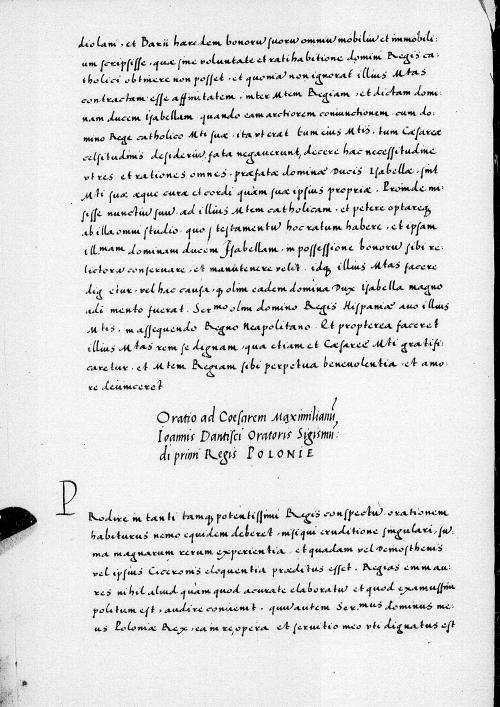 diolani, et Barii hæredem bonorũ suorũ omniũ mobiliũ et immobili:
um scripsisse, quæ sine voluntate et ratihabitione domini Regis ca:
tholici obtinere non posset, et quoniã non ignorat illius Mtas
contractam esse affinitatem, inter Mtem Regiam, et dictam domi:
nam ducem Isabellam, quando eam arctiorem coniunctionem, cum do:
mino Rege catholico Mti suæ, ita vt erat tum eius Mtis, tum Cæsareæ
celsitudinis desideriũ, fata negauerunt, decere hac necessitudine
vt res et rationes omnes, præfatæ dominæ Ducis Isabellæ, sint
Mti suæ æque curæ et cordi quàm suæ ipsius propriæ. Proinde mi:
sisse nunctiũ suũ, ad illius Mtem catholicam, et petere optareq₃
ab illa omni studio, quo testamentũ hoc ratum habere, et ipsam
ill.mam dominam ducem Isabellam, in possessione bonorũ sibi re:
lictorũ conseruare, et manutenere velit, idq₃ illius Mtas facere
dig etur, vel hac causa, q olim eadem domina Dux Isabella magno
adi mento fuerat Sermo olim domino Regis Hispaniæ auo illius
Mtis, in assequendo Regno Neapolitano. Et propterea faceret
illius Mtas rem se dignam, qua etiam et Cæsareæ Mti gratifi:
caretur, et Mtem Regiam sibi perpetua beneuolentia, et amo:
re deuinceret
Oratio ad Coesarem Maximilianũ
Ioannis Dantisci Oratoris Sigismũ:
di primi Regis POLONIE
PRodire in tanti tamq₃ potentissimi Regis conspectũ, orationem
habiturus nemo equidem deberet, nisi qui eruditione singulari, sũ:
ma magnarum rerum experientia, et quadam vel Demosthenis
vel ipsius Ciceronis eloquentia præditus esset. Regias enim au:
res nihil aliud quàm quod acurate elaboratũ et quod examussim
politum est, audire conuenit, qui autem Ser.mus dominus me:
us Poloniæ Rex, ea in re opera et seruitio meo vti dignatus est